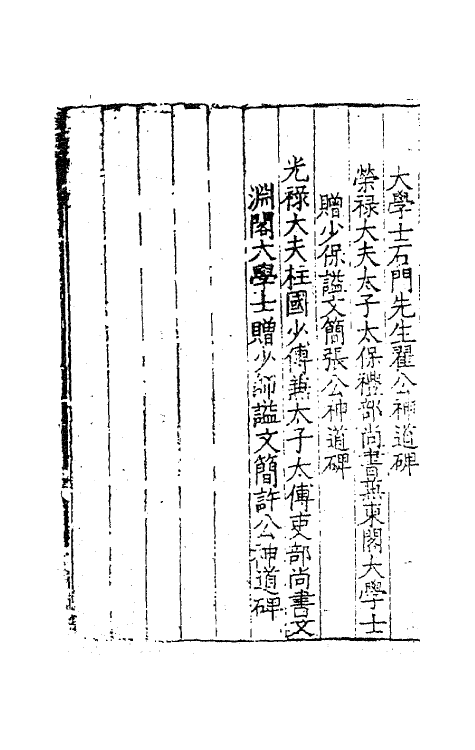 大學士石門先生翟公神道碑
榮祿大夫太子太保禮部尚書兼東閣大學士
贈少保謚文簡張公神道碑
光祿大夫柱國少傅兼太子太傅吏部尚書文
淵閣大學士贈少師謚文簡許公神道碑